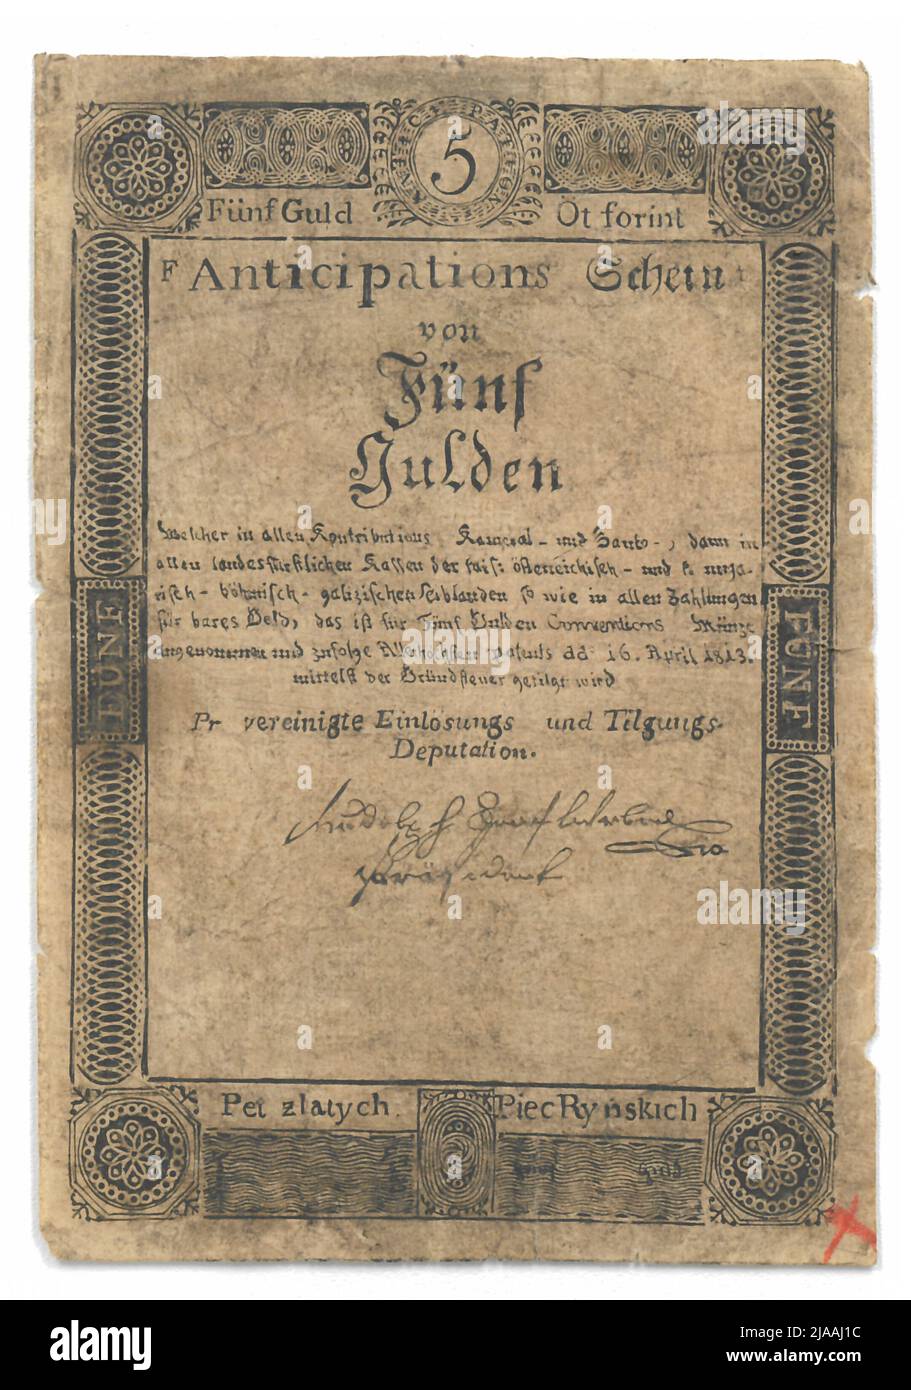 ANTICIPATION
5
Fünf Guld Öt forint
F Anticipations Schein
von
Fünf
Gulden
Welcher in allen Kontributions Kameral- und Banko-, dann in
allen landesfürstlichen Kassen der kais: österreichisch- und k: unga-
risch- böhmisch- galizischen Erblanden so wie in allen Zahlungen
für bares Geld, das ist für Fünf Gulden Conventions Münze
angenommen und zufolge Allerhöchsten Patents dd 16. April 1813.
mittelst der Grundsteuer getilgt wird
Pr vereinigte Einlösungs und Tilgungs-
Deputation.
Rudolph Graf
Präsident
FÜNF
FÜNF
Pet zlatych Pięc Ryńskich
5
alamy
Image ID: 2JAAJ1C
www.alamy.com